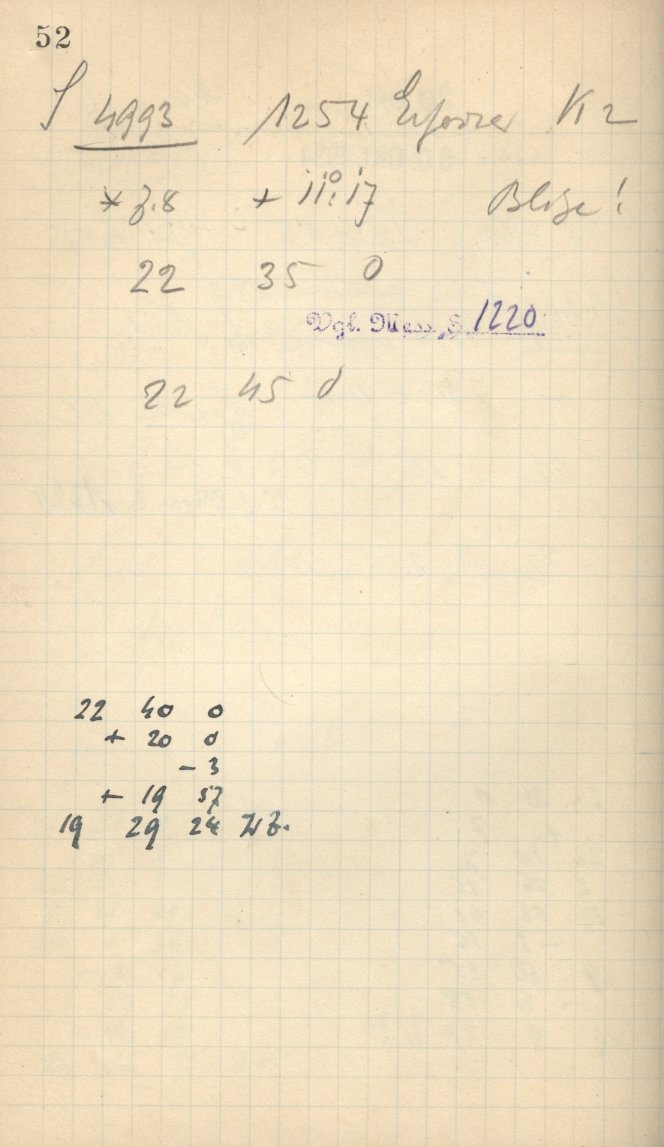 52
S 4993 1254 Erforzer K 2
* 3.8 + 11°.17 Blige!
22 35 0
Vgl. Mess. S. 1220
22 45 0
22 40 0
+ 20 0
- 3
+ 19 57
19 29 24 WZ.